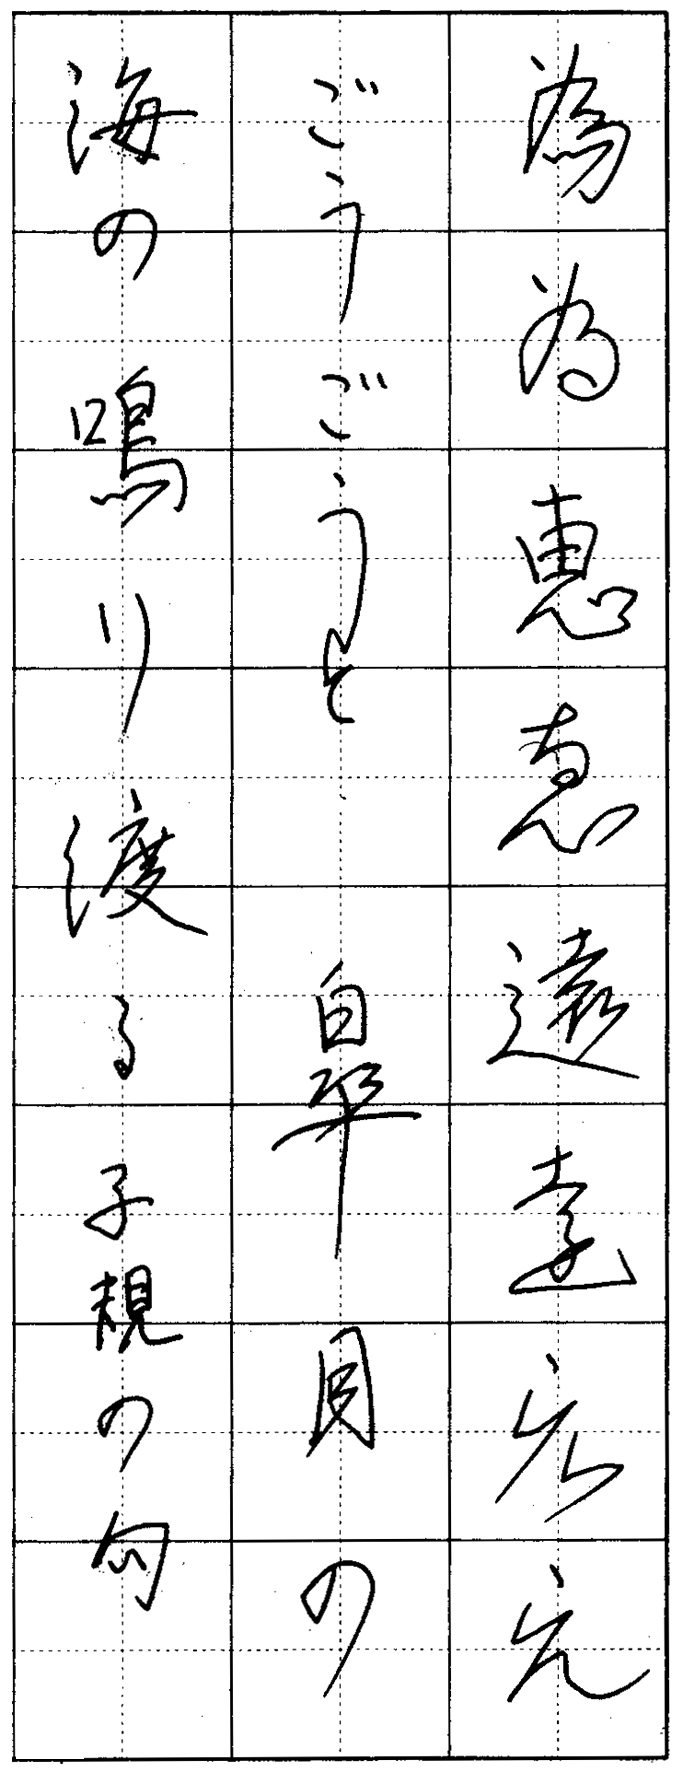 為為恵恵遠遠
ごうごうと 皐月の
海の鳴り渡る子規の句